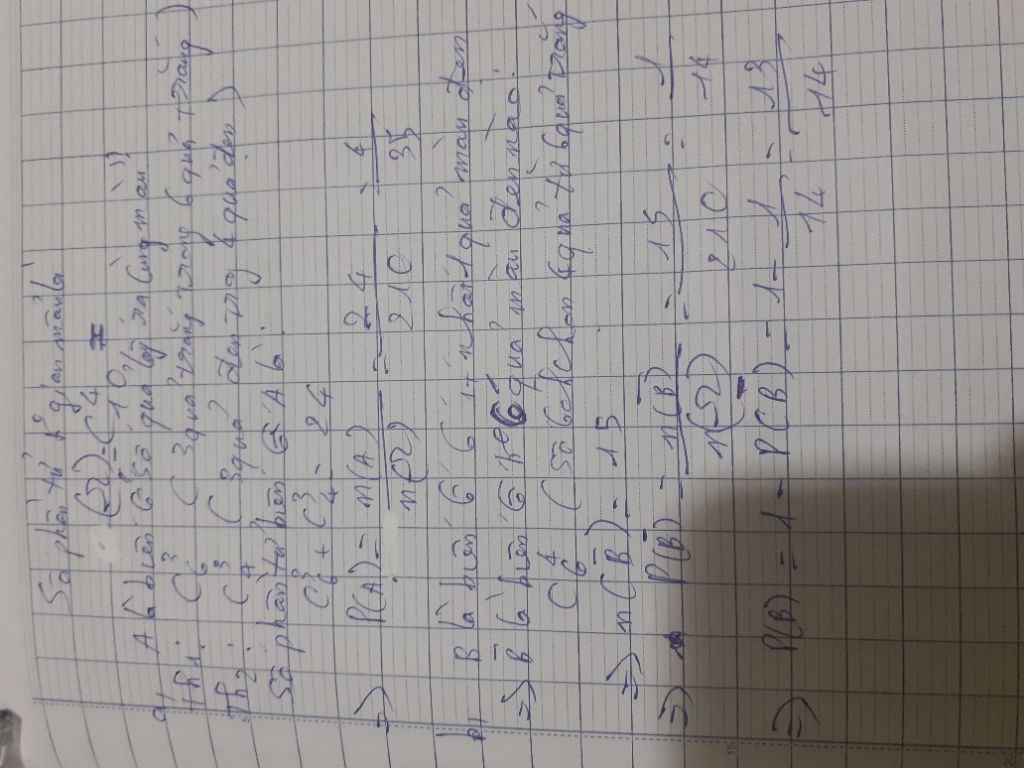 Số phần tử kg gian mẫu là
n(Ω) = C⁴₁₀
a, A là biến cố "Số quả lấy ra cùng màu"
Th1: C³₆ ( 3 quả trắng trong 6 quả trắng )
Th2: C³₄ ( 3 quả đen trong 4 quả đen )
Số phần tử biến cố A là:
C³₆ + C³₄ = 24
=> P(A) = n(A)/n(Ω) = 24/210 = 4/35
b, B là biến cố có ít nhất 1 quả màu đen
=> B̅ là biến cố ko có quả màu đen nào.
C⁴₆ ( số cách chọn 4 quả từ 6 quả trắng
=> n(B̅) = 15
=> P(B̅) = n(B̅)/n(Ω) = 15/210 = 1/14
=> P(B) = 1 - P(B̅) = 1 - 1/14 = 13/14